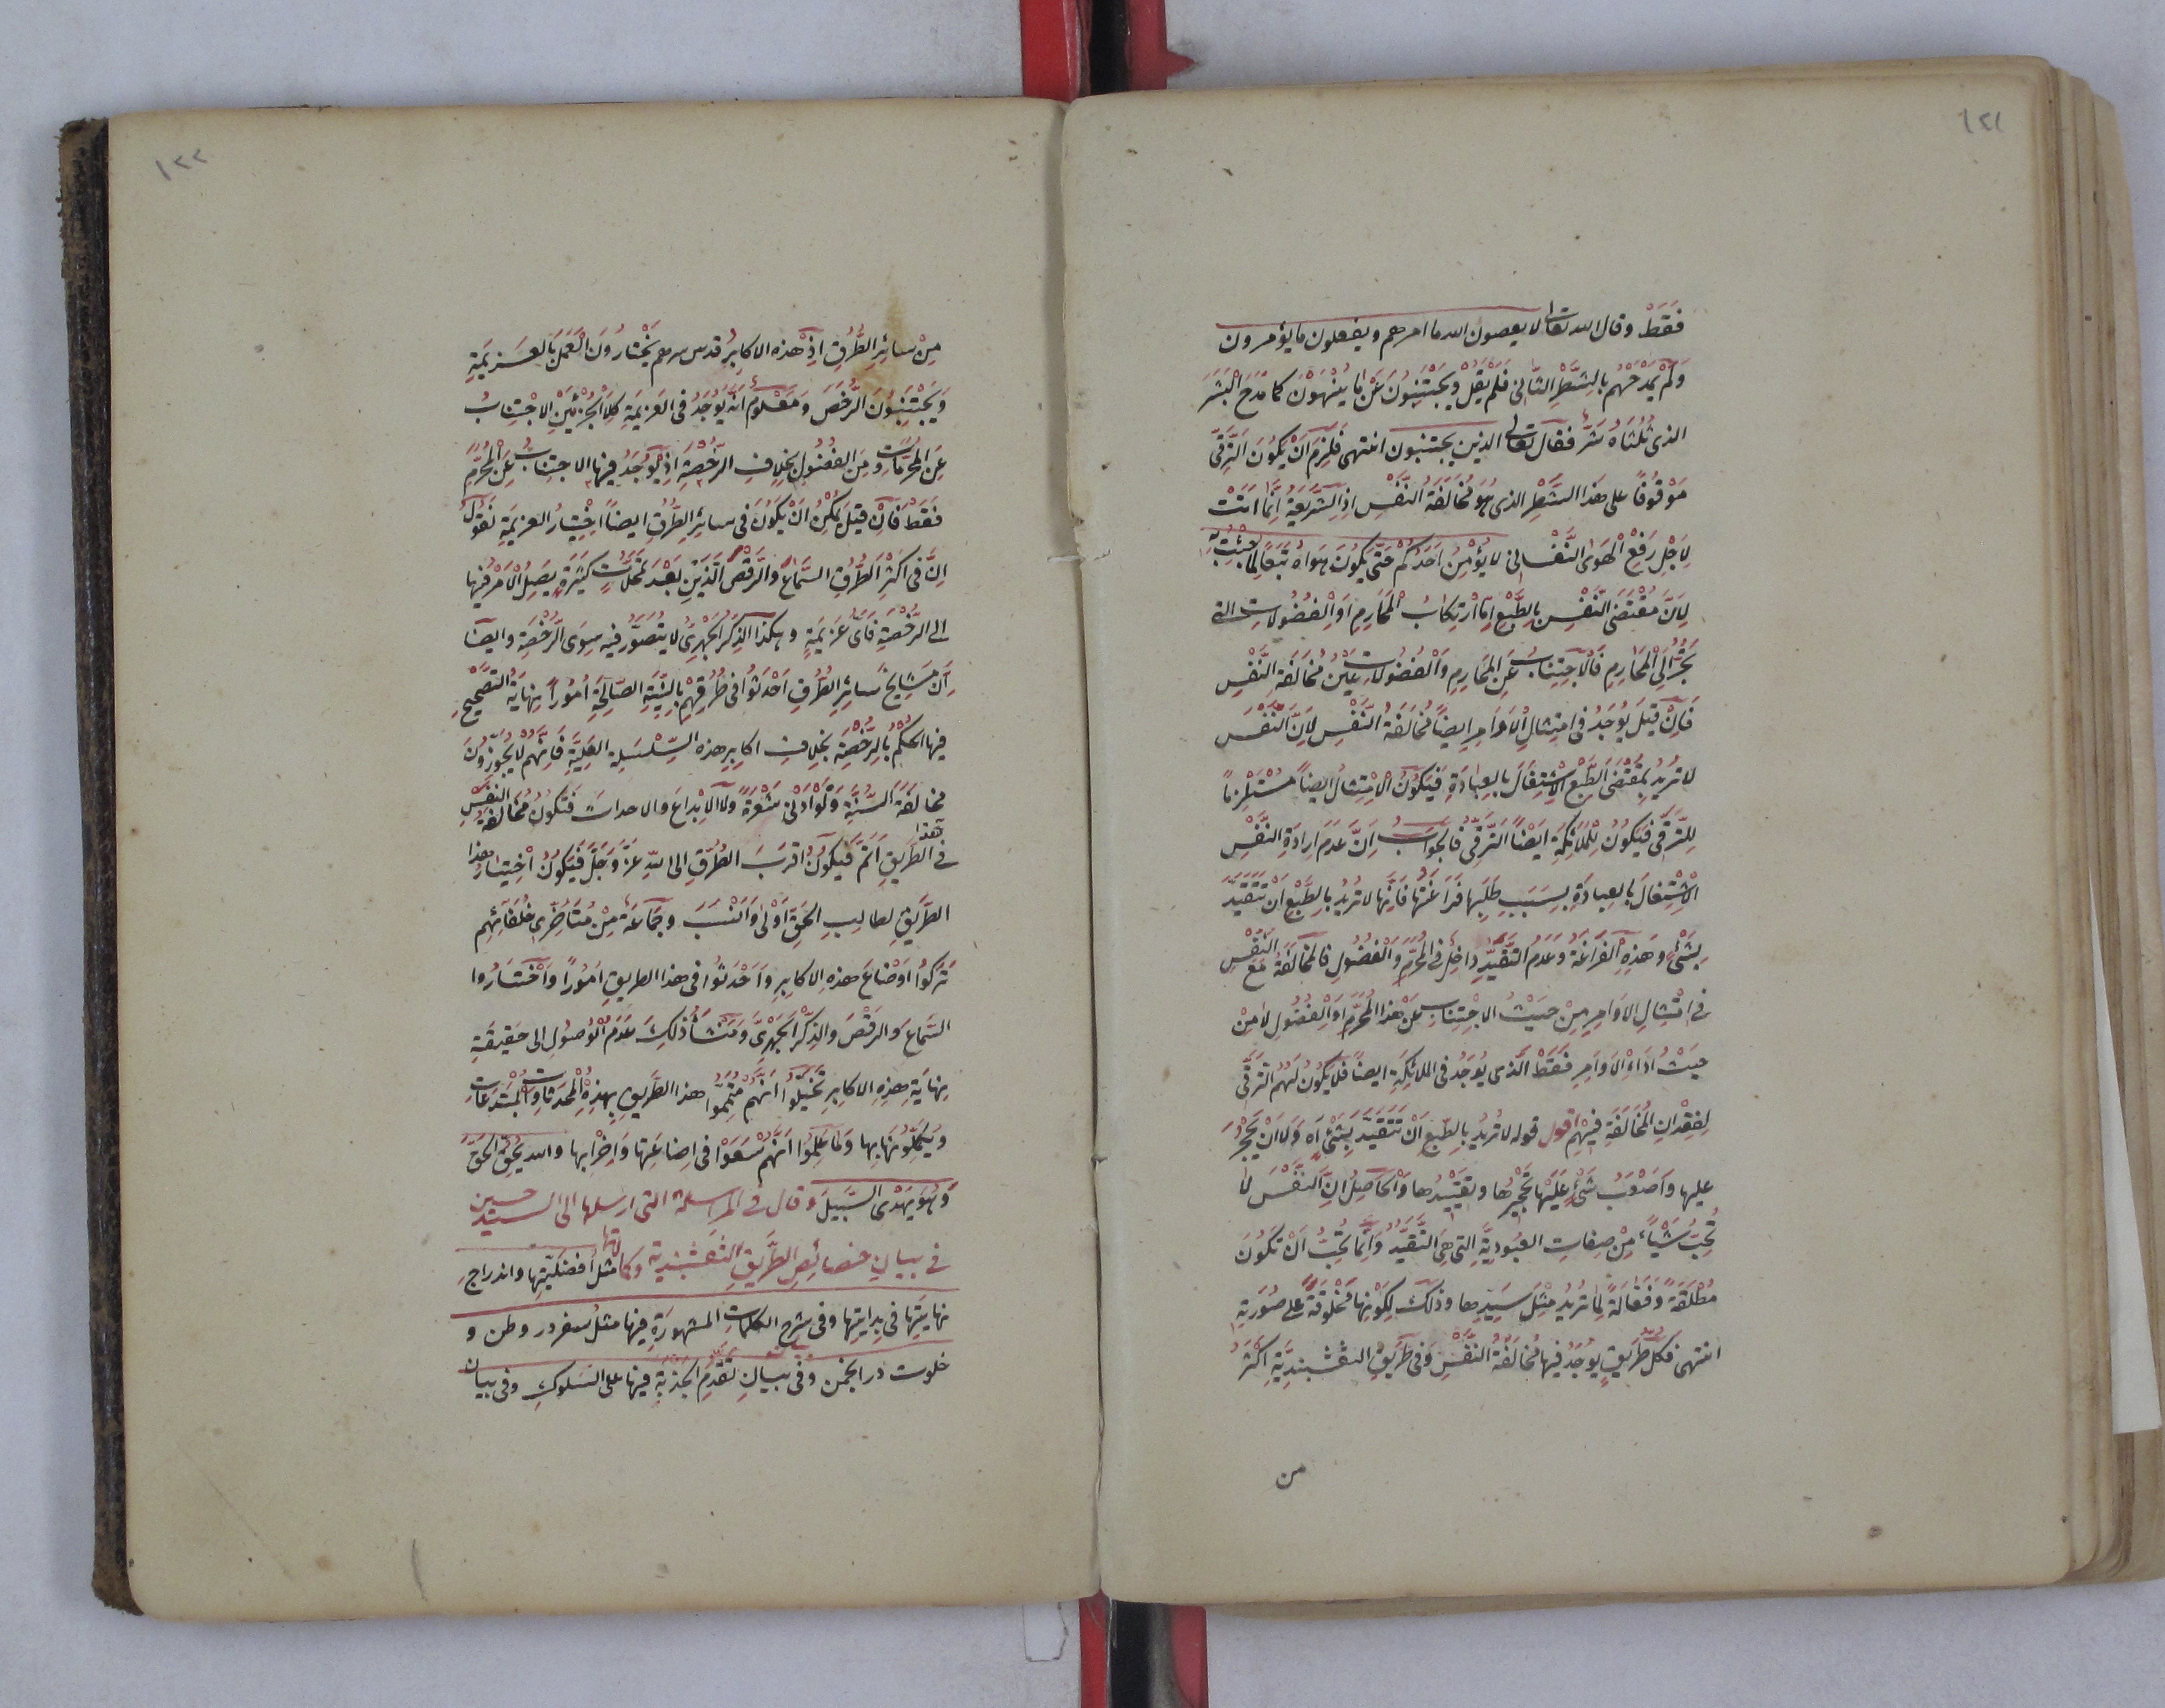 ١٢١
فَقَطْ وقال الله تعالى لا يعصون الله ما امرهم ويفعلون ما يؤمرون
وَلَمْ يَمْدَحْهُم بالشَّطْرِ الثَّانى فلم يقل ويجتنبون عن ما ينهون كما مدح البشر
الذى ثلثاه شر فقال تعالى الذين يجتنبون انتهى فلزم ان يكون الترقى
موقوفا على هذا الشطر الذى هو مخالفة النفس اذ الشريعة انما اتت
لاجل رفع الهوى النفسانى لا يؤمن احدكم حتى يكون هواه تبعا لما جئت به
لان مقتضى النفس بالطبع اما ارتكاب المحارم او الفضولات التى
تجر الى المحارم فالاجتناب عن المحارم والفضولات عين مخالفة النفس
فان قيل يوجد فى امتثال الاوامر ايضا مخالفة النفس لان النفس
لا تريد بمقتضى الطبع الاشتغال بالعبادة فيكون الامتثال ايضا مستلزما
للترقى فيكون للملائكة ايضا الترقى فالجواب ان عدم ارادة النفس
الاشتغال بالعبادة بسبب طلبها فراغتها فانها لا تريد بالطبع ان تتقيد
بشئ وهذه الفراغة وعدم التقيد داخل فى المحرم والفضول فالمخالفة مع النفس
فى امتثال الاوامر من حيث الاجتناب عن هذا المحرم او الفضول لا من
حيث اداء الاوامر فقط الذى يوجد فى الملائكة ايضا فلا يكون لهم الترقى
لفقدان المخالفة فيهم اقول قوله لا تريد بالطبع ان تتقيد بشئ اه ولا ان يحجر
عليها واصعب شئ عليها تحجيرها وتقييدها والحاصل ان النفس لا
تحب شياء من صفات العبودية التى هى التقيد وانما تحب ان تكون
مطلقة وفعالة لما تريد مثل سيدها وذلك لكونها مخلوقة على صورته
انتهى فكل طريق يوجد فيها مخالفة النفس وفى طريق النقشبندية اكثر
من
١٢٢
من سائر الطرق اذ هذه الاكابر قدس سرهم يختارون العمل بالعزيمة
ويجتنبون الرخص ومعلوم انه يوجد فى العزيمة كلا الجزئين الاجتناب
عن المحرمات ومن الفضول بخلاف الرخصة اذ يوجد فيها الاجتناب عن المحرم
فقط فان قيل يمكن ان يكون فى سائر الطرق ايضا اختيار العزيمة نقول
ان فى اكثر الطرق السماع والرقص الذين بعد تمحلات كثيرة يصل الامر فيها
الى الرخصة فاى عزيمة وهكذا الذكر الجهرى لا يتصور فيه سوى الرخصة وايضا
ان مشايخ سائر الطرق احدثوا فى طرقهم بالنية الصالحة امورا نهاية التصحيح
فيها الحكم بالرخصة بخلاف اكابر هذه السلسلة العلية فانهم لا يجوزون
مخالفة السنة ولو ادنى شعرة ولا الابداع والاحداث فتكون مخالفة النفس
فى هذا الطريق اتم فيكون اقرب الطرق الى الله عز وجل فيكون اختيار هذا
الطريق لطالب الحق اولى وانسب وجماعة من متاخرى خلفائهم
تركوا اوضاع هذه الاكابر واحدثوا فى هذا الطريق امورا واختاروا
السماع والرقص والذكر الجهرى ومنشأ ذلك عدم الوصول الى حقيقة
نهاية هذه الاكابر تخيلوا انهم متمموا هذا الطريق بهذه المحدثات والمبتدعات
ويكملونها بها ولما علموا انهم سعوا فى اضاعتها واخرابها والله يحق الحق
وهو يهدى السبيل وقال فى المراسلة التى ارسلها الى السيد حسين
فى بيان خصائص الطريق النقشبندية وكمالاتها مثل افضليتها واندراج
نهايتها فى بدايتها وفى شرح الكلمات المشهورة فيها مثل سفر در وطن و
خلوت در انجمن وفى بيان تقدم الجذبة فيها على السلوك وفى بيان